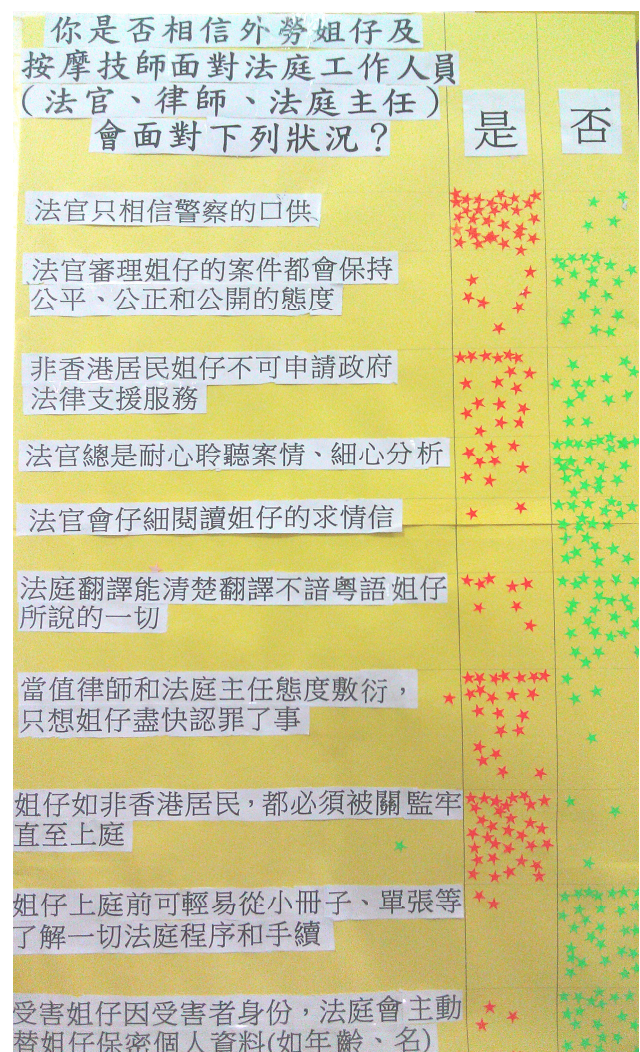 你是否相信外勞姐仔及
按摩技師面對法庭工作人員
(法官、律師、法庭主任)
會面對下列狀況？
是
否
法官只相信警察的口供
法官審理姐仔的案件都會保持
公平、公正和公開的態度
非香港居民姐仔不可申請政府
法律支援服務
法官總是耐心聆聽案情、細心分析
法官會仔細閱讀姐仔的求情信
法庭翻譯能清楚翻譯不諳粵語姐仔
所說的一切
當值律師和法庭主任態度敷衍，
只想姐仔盡快認罪了事
姐仔如非香港居民，都必須被關監牢
直至上庭
姐仔上庭前可輕易從小冊子、單張等
了解一切法庭程序和手續
受害姐仔因受害者身份，法庭會主動
替姐仔保密個人資料(如年齡、名)